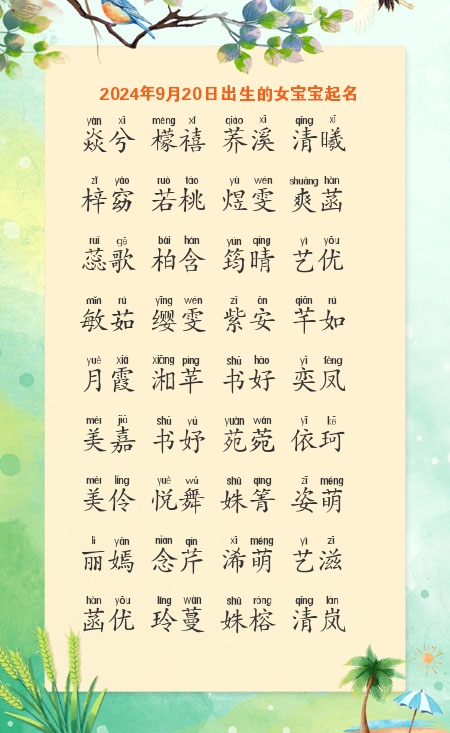 2024年9月20日出生的女宝宝起名
yàn xī méng xǐ qiáo xī qīng xī
焱兮 檬禧 荞溪 清曦
zǐ yǎo ruò táo yù wén shuǎng hàn
梓窈 若桃 煜雯 爽菡
ruǐ gē bǎi hán yún qíng yì yōu
蕊歌 柏含 筠晴 艺优
mǐn rú yīng wén zǐ ān qiān rú
敏茹 缨雯 紫安 芊如
yuè xiá xiāng píng shū hǎo yì fèng
月霞 湘苹 书好 奕凤
měi jiā shū yú yuàn wǎn yī kē
美嘉 书妤 苑菀 依珂
měi líng yuè wǔ shū qìng zī méng
美伶 悦舞 姝箐 姿萌
lì yān niàn qín xī méng yì zī
丽嫣 念芹 浠萌 艺滋
hàn yōu líng wàn shū róng qīng lán
菡优 玲蔓 姝榕 清岚